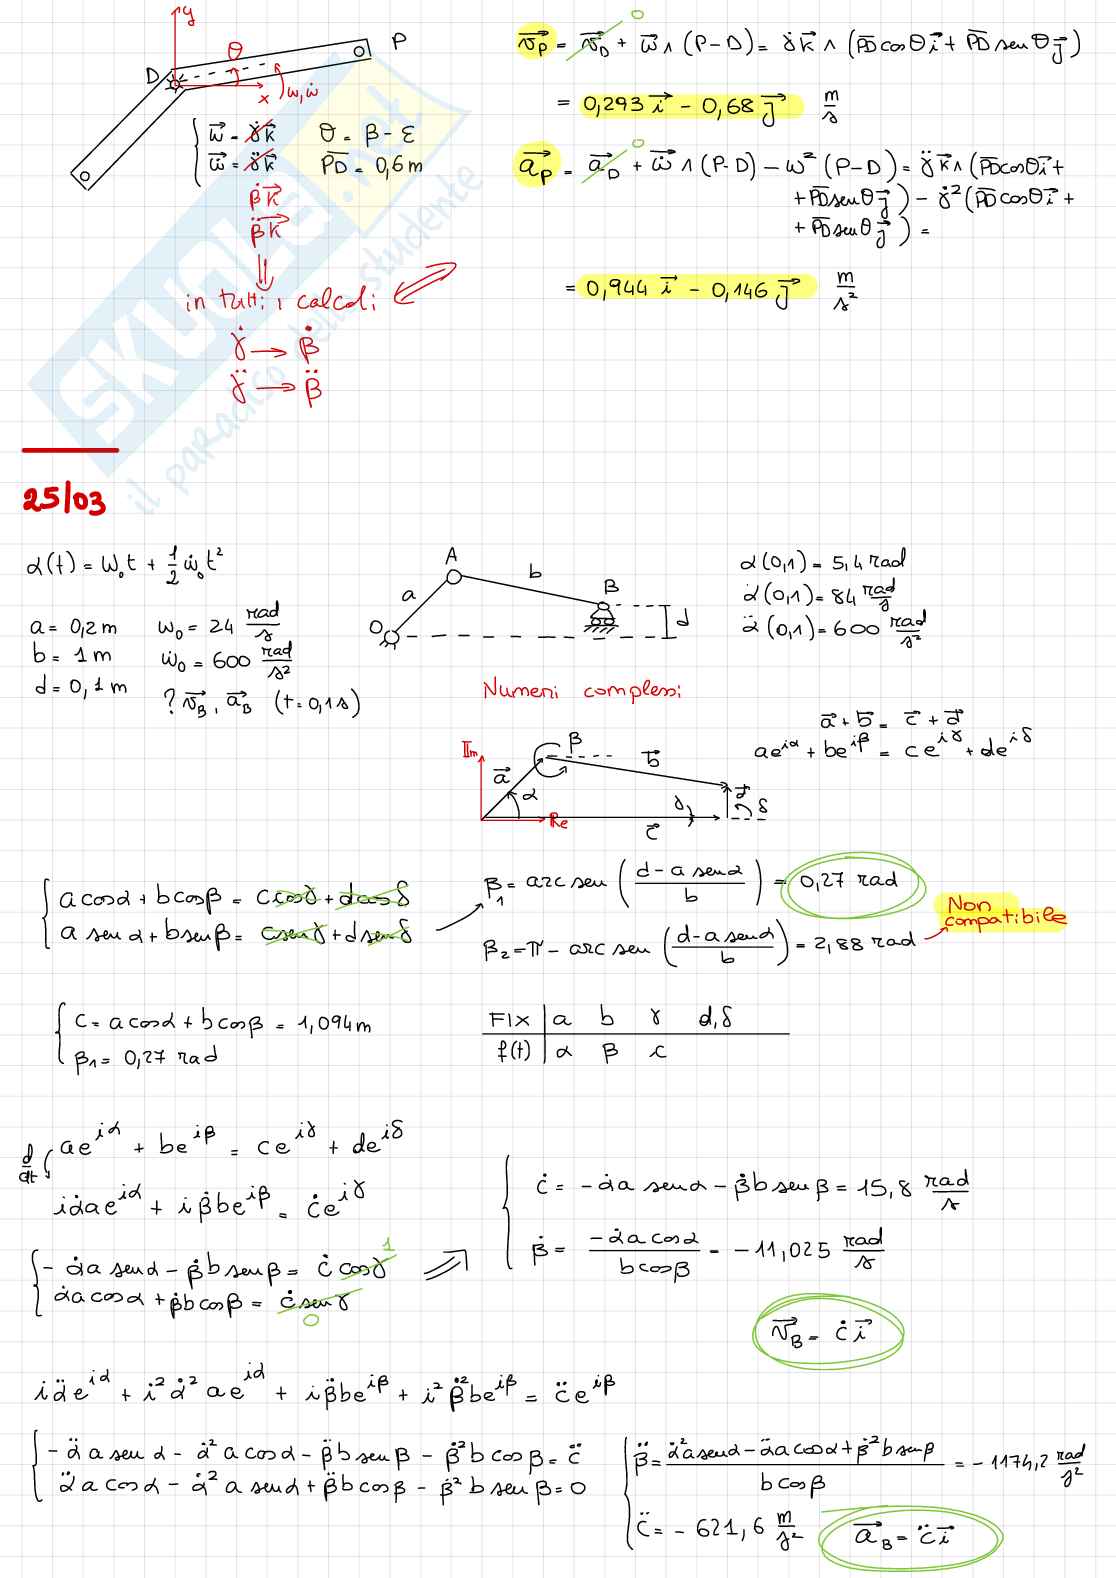 y
θ
P
D
x
ω, ω̇
{ ω⃗ = γ̇k⃗   θ = β - ε
ω̇⃗ = γ̈k⃗   PD = 0,6 m
β̇k⃗
β̈k⃗
⇓
in tutti i calcoli
γ̇ → β̇
γ̈ → β̈
v⃗_P = v⃗_D + ω⃗ ∧ (P-D) = γ̇k⃗ ∧ (PD cosθ i⃗ + PD senθ j⃗)
0
= 0,293 i⃗ - 0,68 j⃗  m/s
a⃗_P = a⃗_D + ω̇⃗ ∧ (P-D) - ω² (P-D) = γ̈k⃗ ∧ (PD cosθ i⃗ +
0
+ PD senθ j⃗) - γ̇² (PD cosθ i⃗ +
+ PD senθ j⃗) =
= 0,944 i⃗ - 0,146 j⃗  m/s²
SKUOLA.net
il paradiso dello studente
25/03
α(t) = ω₀t + 1/2 ω̇₀t²
a = 0,2 m   ω₀ = 24 rad/s
b = 1 m   ω̇₀ = 600 rad/s²
d = 0,1 m   ? v⃗_B, a⃗_B (t = 0,1 s)
A
a
b
B
O
d
α(0,1) = 5,4 rad
α̇(0,1) = 84 rad/s
α̈(0,1) = 600 rad/s²
Numeri complessi
Im
a⃗
α
β
b⃗
d⃗
γ
δ
Re
c⃗
a⃗ + b⃗ = c⃗ + d⃗
ae^{iα} + be^{iβ} = ce^{iγ} + de^{iδ}
{ a cosα + b cosβ = c cosγ + d cosδ
a senα + b senβ = c senγ + d senδ
β₁ = arcsen ((d - a senα)/b) = 0,27 rad
β₂ = π - arcsen ((d - a senα)/b) = 2,88 rad
Non compatibile
{ c = a cosα + b cosβ = 1,094 m
β₁ = 0,27 rad
FIX | a b γ d, δ
f(t) | α β c
d/dt ( ae^{iα} + be^{iβ} = ce^{iγ} + de^{iδ}
iα̇ae^{iα} + iβ̇be^{iβ} = ċe^{iγ}
{ - α̇a senα - β̇b senβ = ċ cosγ
1
α̇a cosα + β̇b cosβ = ċ senγ
0
{ ċ = -α̇a senα - β̇b senβ = 15,8 rad/s
β̇ = (-α̇a cosα)/(b cosβ) = -11,025 rad/s
v⃗_B = ċ i⃗
iα̈e^{iα} + i²α̇²ae^{iα} + iβ̈be^{iβ} + i²β̇²be^{iβ} = c̈e^{iβ}
{ -α̈a senα - α̇²a cosα - β̈b senβ - β̇²b cosβ = c̈
α̈a cosα - α̇²a senα + β̈b cosβ - β̇²b senβ = 0
{ β̈ = (α̇²a senα - α̈a cosα + β̇²b senβ)/(b cosβ) = -1174,2 rad/s²
c̈ = -621,6 m/s²
a⃗_B = c̈ i⃗